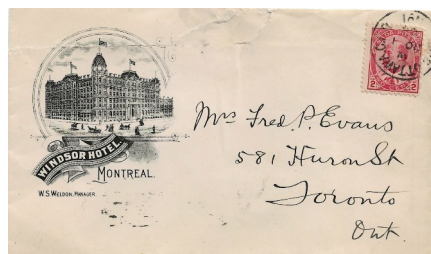 WINDSOR HOTEL.
MONTREAL.
W.S. WELDON, MANAGER.
2 2
Mrs Fred. P. Evans
581 Huron St
Toronto
Ont.